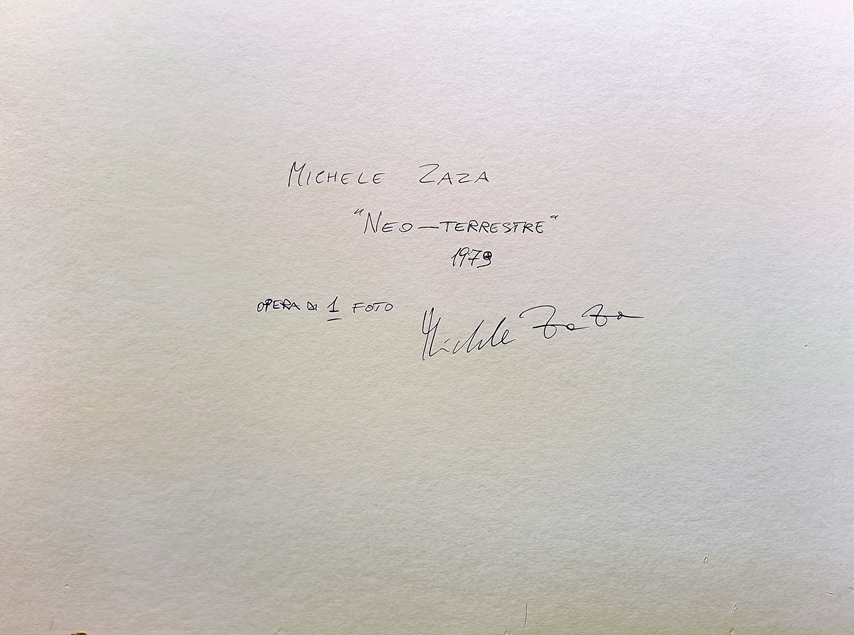 MICHELE ZAZA
"NEO-TERRESTRE"
1979
OPERA DI 1 FOTO
Michele Zaza